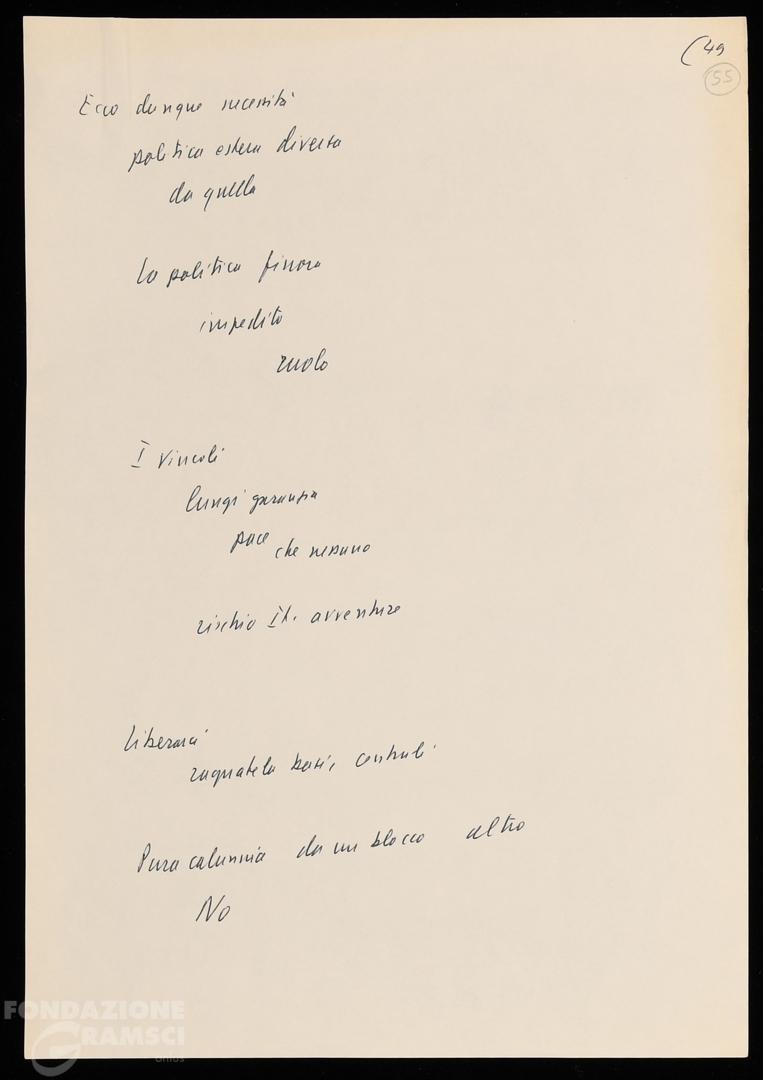 (49
55
Ecco dunque necessità
politica estera diversa
da quella
La politica finora
impedito
ruolo
I vincoli
lungi garanzia
pace che nessuno
rischio It. avventure
Liberarci
ragnatela basi, centrali
Pura calunnia da un blocco altro
No
FONDAZIONE
GRAMSCI
onlus